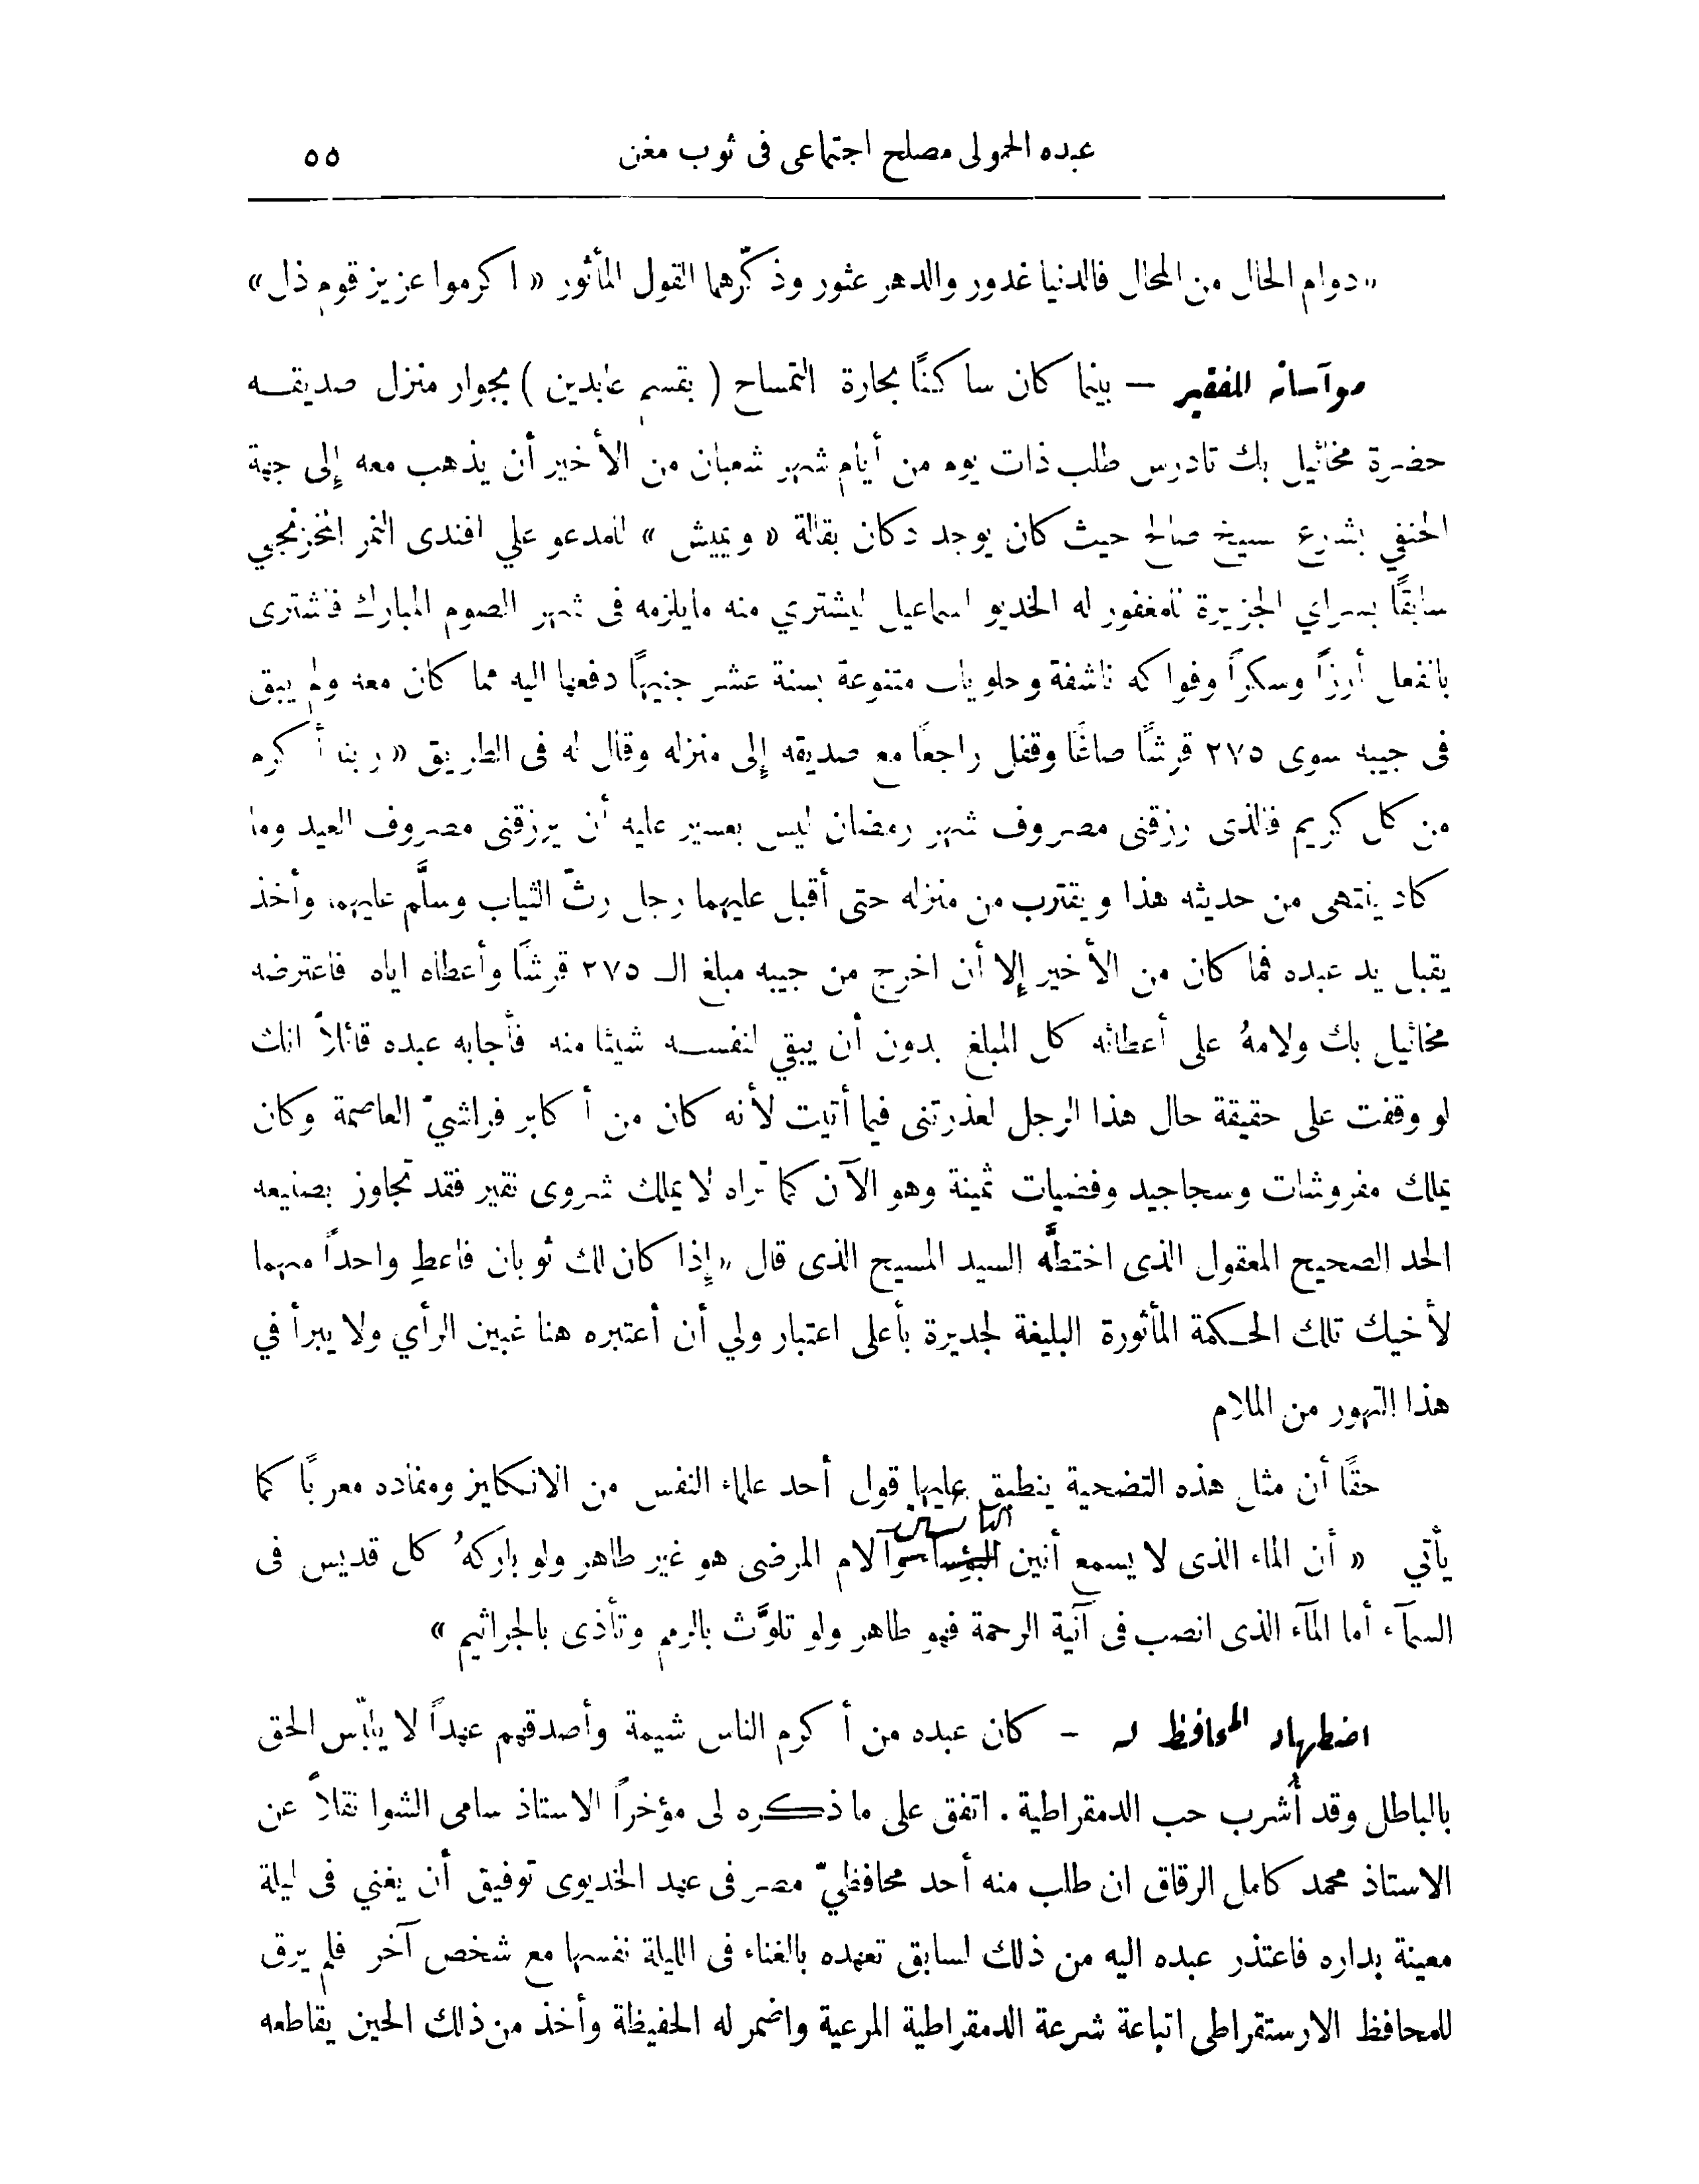 عبده الحمولى مصلح اجتماعى فى ثوب مغن ٥٥
« دوام الحال من المحال فالدنيا غدور والدهر عثور وذكّرهما القول المأثور « اكرموا عزيز قوم ذل »
موآساته للفقير — بينما كان ساكنًا بحارة التمساح ( بقسم عابدين ) بجوار منزل صديقـــه
حضرة مخائيل بك تادرس طلب ذات يوم من أيام شهر شعبان من الأخير أن يذهب معه إلى جهة
الحنفي بشارع سيخ صالح حيث كان يوجد دكان بقالة « ويميش » للمدعو علي افندى النمر المخزنجي
سابقًا بسراي الجزيرة للمغفور له الخديو اسماعيل ليشتري منه مايلزمه فى شهر الصوم المبارك فاشترى
بالفعل أرزاً وسكراً وفواكه ناشفة وحلويات متنوعة بستة عشر جنيهًا دفعها اليه مما كان معه ولم يبق
فى جيبه سوى ٢٧٥ قرشًا صاغًا وقفل راجعًا مع صديقه إلى منزله وقال له فى الطريق « ربنا أكرم
من كل كريم فالذى رزقنى مصروف شهر رمضان ليس بعسير عليه أن يرزقنى مصروف العيد وما
كاد ينتهى من حديثه هذا ويقترب من منزله حتى أقبل عليهما رجل رثّ الثياب وسلَّم عليهما وأخذ
يقبل يد عبده فما كان من الأخير إلا أن اخرج من جيبه مبلغ الـ ٢٧٥ قرشًا وأعطاه اياه فاعترضه
مخائيل بك ولامهُ على أعطائه كل المبلغ بدون أن يبقي لنفســه شيئا منه فأجابه عبده قائلاً انك
لو وقفت على حقيقة حال هذا الرجل لعذرتنى فيما أتيت لأنه كان من أكابر فراشيّ العاصمة وكان
يملك مفروشات وسجاجيد وفضيات ثمينة وهو الآن كما تراه لا يملك شروى نقير فقد تجاوز بصنيعه
الحد الصحيح المعقول الذى اختطَّه السيد المسيح الذى قال « إذا كان لك ثوبان فاعطِ واحداً منهما
لأخيك تلك الحـكمة المأثورة البليغة لجديرة بأعلى اعتبار ولي أن أعتبره هنا غبين الرأي ولا يبرأ في
هذا التهور من الملام
حقًا أن مثل هذه التضحية ينطبق عليها قول أحد علماء النفس من الانـكليز ومفاده معربًا كما
البائسين
يأتي « أن الماء الذى لا يسمع أنين البؤساء وآلام المرضى هو غير طاهر ولو باركهُ كل قديس فى
السمآء أما المآء الذى انصب فى آنية الرحمة فهو طاهر ولو تلوَّث بالرمم وتأذى بالجراثيم »
اضطهاد المحافظ له – كان عبده من أكرم الناس شيمة وأصدقهم عهداً لا يلبّس الحق
بالباطل وقد أُشرب حب الدمقراطية . اتفق على ما ذكـــره لى مؤخراً الاستاذ سامى الشوا نقلاً عن
الاستاذ محمد كامل الرقاق ان طلب منه أحد محافظيّ مصر فى عهد الخديوى توفيق أن يغني فى ليلة
معينة بداره فاعتذر عبده اليه من ذلك لسابق تعهده بالغناء فى الليلة نفسها مع شخص آخر فلم يرق
للمحافظ الارستقراطى اتباعة شرعة الدمقراطية المرعية واضمر له الحفيظة وأخذ من ذلك الحين يقاطعه